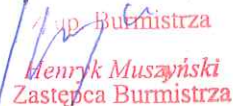 z up. Burmistrza
Henryk Muszyński
Zastępca Burmistrza